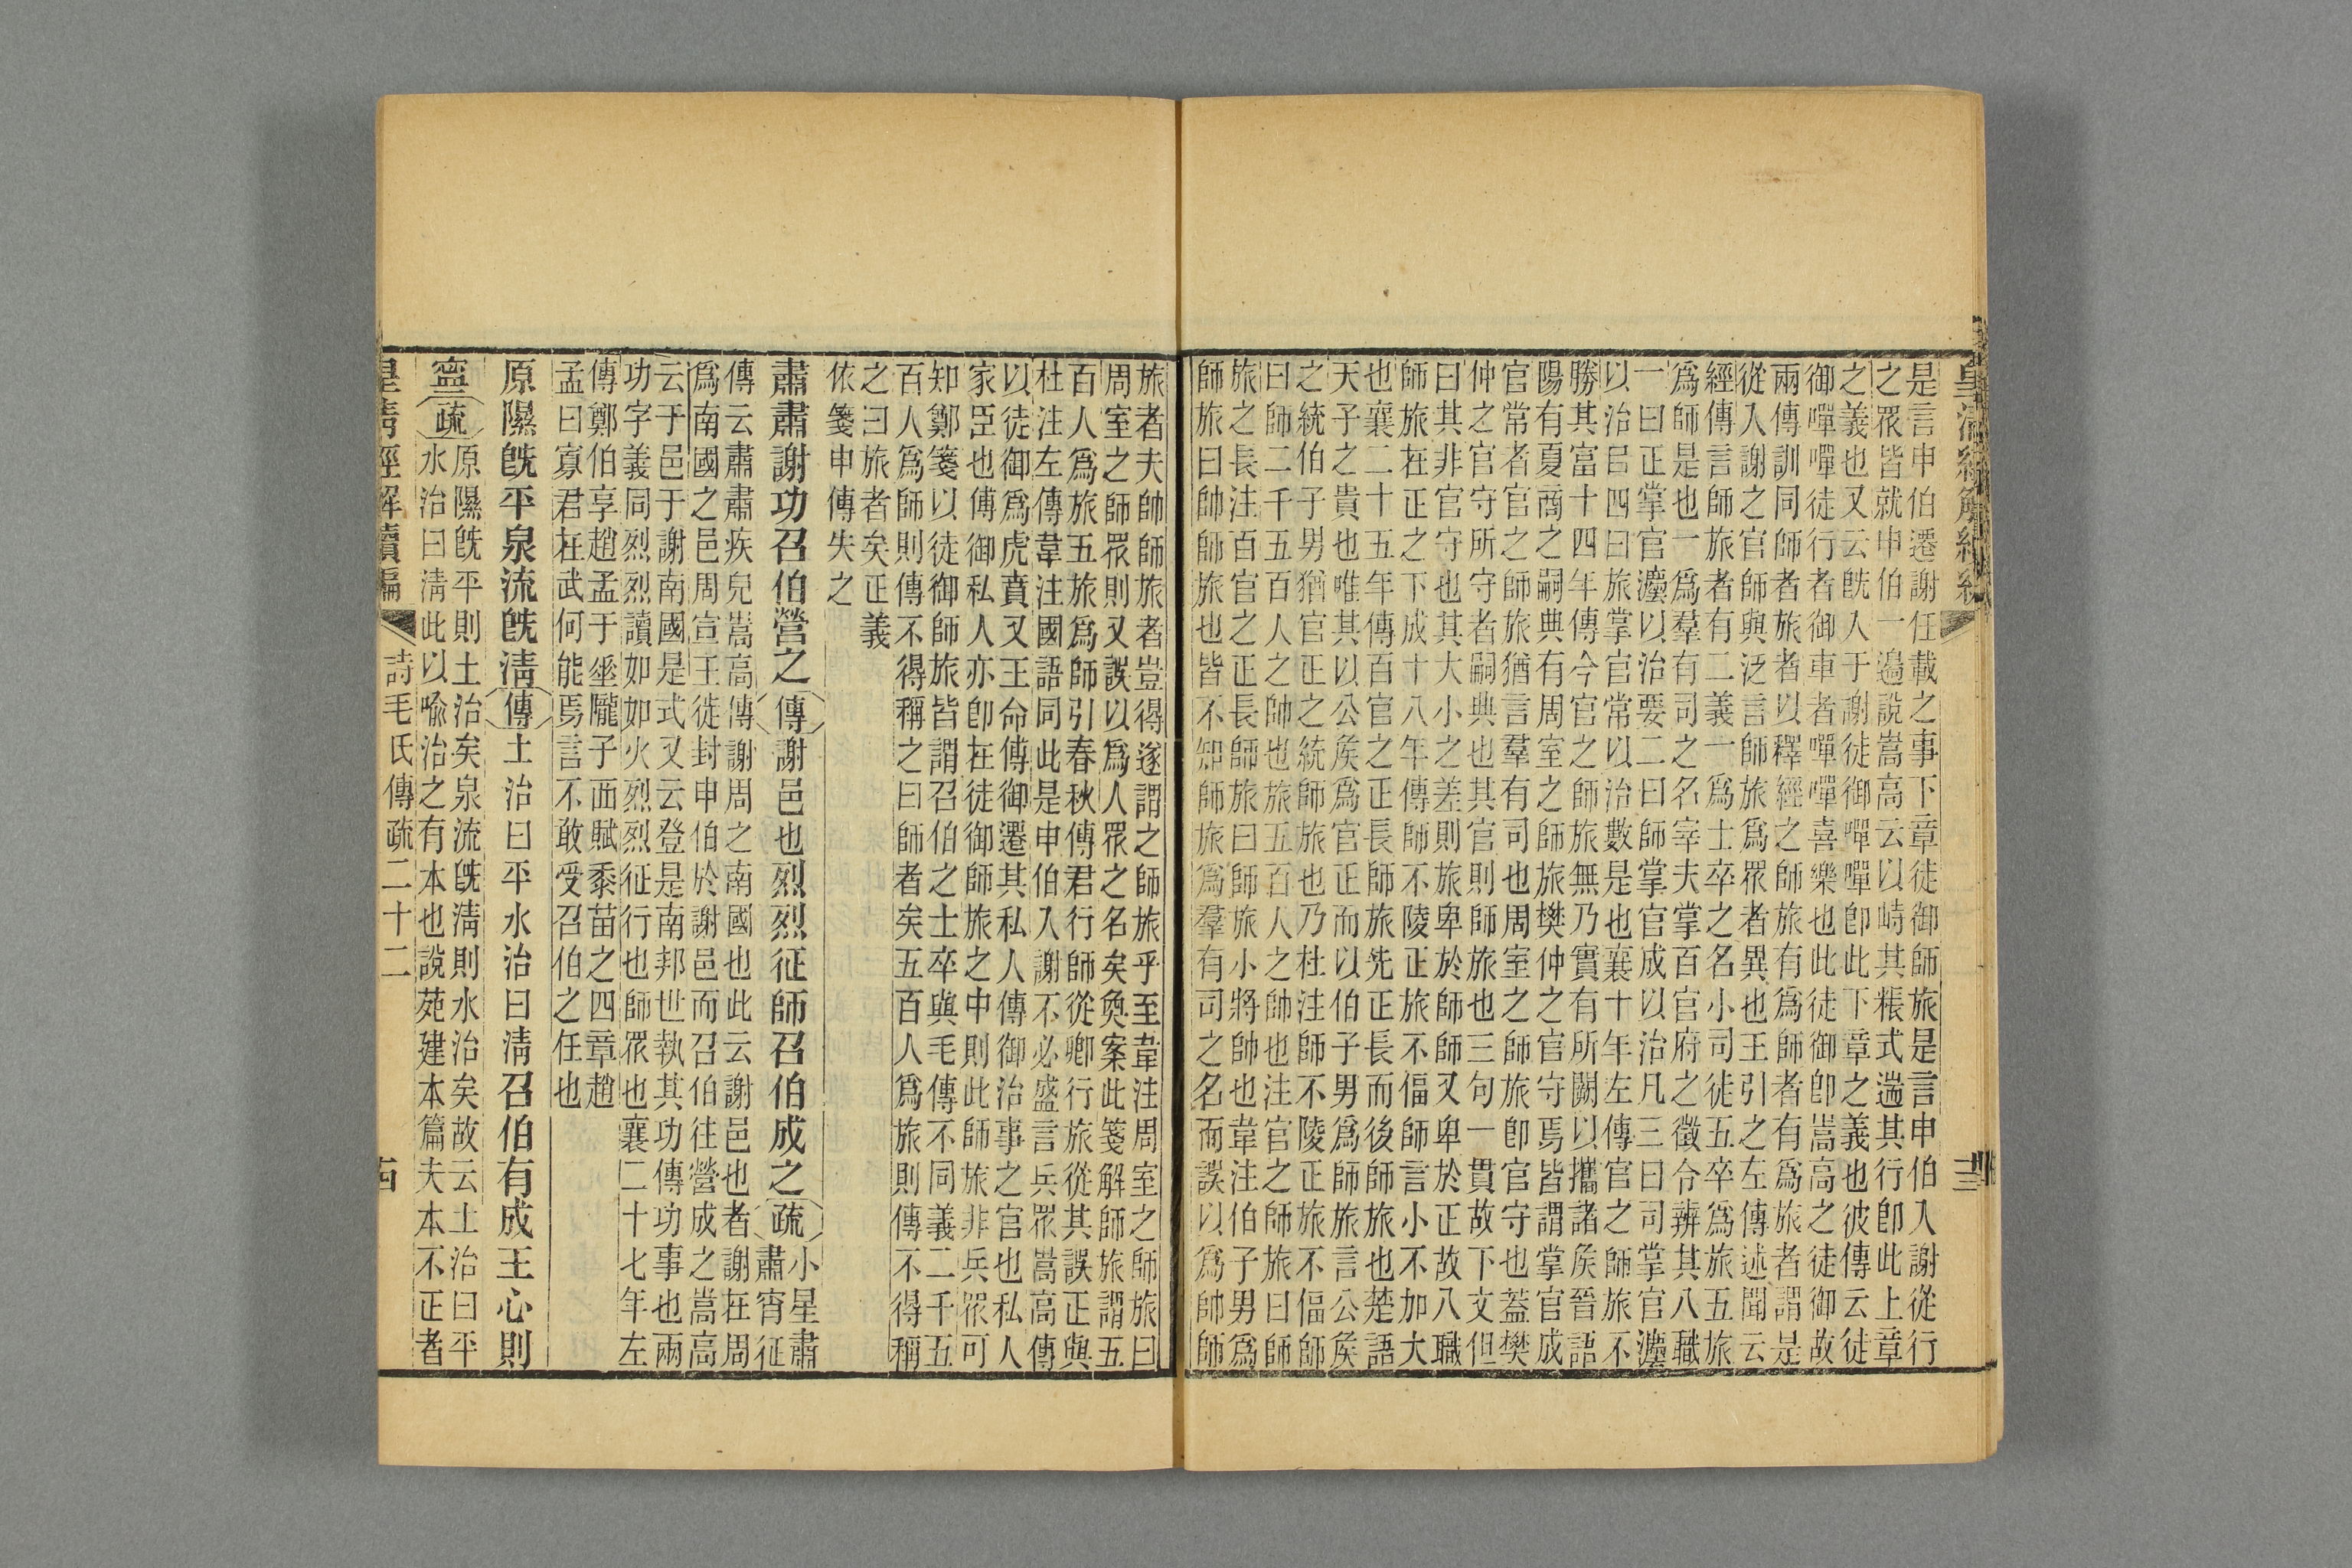 皇清經解續編
十三
是言申伯遷謝任載之事下章徒御師旅是言申伯入謝從行
之眾皆就申伯一邊說嵩高云以峙其粻式遄其行卽此上章
之義也又云旣入于謝徒御嘽嘽卽此下章之義也彼傳云徒
御嘽嘽徒行者御車者嘽嘽喜樂也此徒御卽嵩高之徒御故
兩傳訓同師者旅者以釋經之師旅有爲師者有爲旅者謂是
從入謝之官師與泛言師旅爲眾者異也王引之左傳述聞云
經傳言師旅者有二義一爲士卒之名小司徒五卒爲旅五旅
爲師是也一爲羣有司之名宰夫掌百官府之徵令辨其八職
一曰正掌官灋以治要二曰師掌官成以治凡三曰司掌官灋
以治目四曰旅掌官常以治數是也襄十年左傳官之師旅不
勝其富十四年傳今官之師旅無乃實有所闕以攜諸矦晉語
陽有夏商之嗣典有周室之師旅樊仲之官守焉皆謂掌官成
官常者官之師旅猶言羣有司也周室之師旅卽官守也蓋樊
仲之官守所守者嗣典也其官則師旅也三句一貫故下文但
曰其非官守也其大小之差則旅卑於師師又卑於正故八職
師旅在正之下成十八年傳師不陵正旅不偪師言小不加大
也襄二十五年傳百官之正長師旅先正長而後師旅也楚語
天子之貴也唯其以公矦爲官正而以伯子男爲師旅言公矦
之統伯子男猶官正之統師旅也乃杜注師不陵正旅不偪師
曰師二千五百人之帥也旅五百人之帥也注官之師旅曰師
旅之長注百官之正長師旅曰師旅小將帥也韋注伯子男爲
師旅曰帥師旅也皆不知師旅爲羣有司之名而誤以爲帥師
旅者夫帥師旅者豈得遂謂之師旅乎至韋注周室之師旅曰
周室之師眾則又誤以爲人眾之名矣奐案此箋解師旅謂五
百人爲旅五旅爲師引春秋傳君行師從卿行旅從其誤正與
杜注左傳韋注國語同此是申伯入謝不必盛言兵眾嵩高傳
以徒御爲虎賁又王命傳御遷其私人傳御治事之官也私人
家臣也傅御私人亦卽在徒御師旅之中則此師旅非兵眾可
知鄭箋以徒御師旅皆謂召伯之士卒與毛傳不同義二千五
百人爲師則傳不得稱之曰師者矣五百人爲旅則傳不得稱
之曰旅者矣正義
依箋申傳失之
肅肅謝功召伯營之傳謝邑也烈烈征師召伯成之疏小星肅
肅宵征
傳云肅肅疾皃嵩高傳謝周之南國也此云謝邑也者謝在周
爲南國之邑周宣王徙封申伯於謝邑而召伯往營成之嵩高
云于邑于謝南國是式又云登是南邦世執其功傳功事也兩
功字義同烈烈讀如如火烈烈征行也師眾也襄二十七年左
傳鄭伯享趙孟于垂隴子西賦黍苗之四章趙
孟曰寡君在武何能焉言不敢受召伯之任也
原隰旣平泉流旣淸傳土治曰平水治曰淸召伯有成王心則
寧疏原隰旣平則土治矣泉流旣淸則水治矣故云土治曰平
水治曰淸此以喻治之有本也說苑建本篇夫本不正者
皇清經解續編
詩毛氏傳疏二十二
古